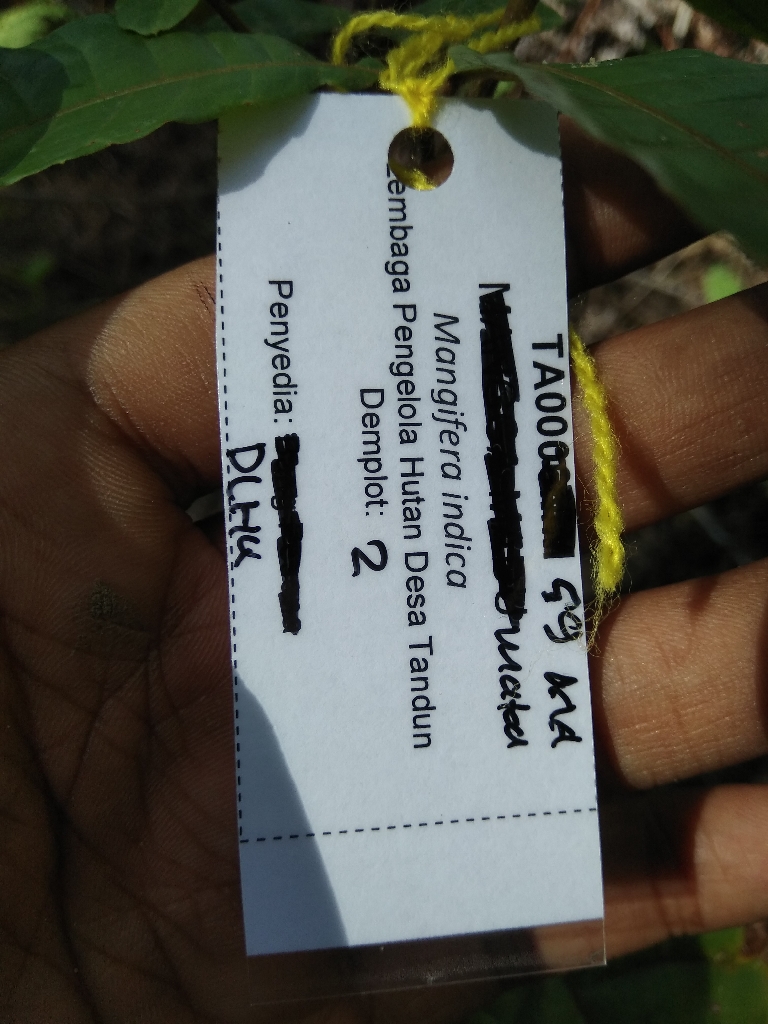 TA000
Mangifera indica
Lembaga Pengelola Hutan Desa Tandun
Demplot: 2
Penyedia:
DLHK